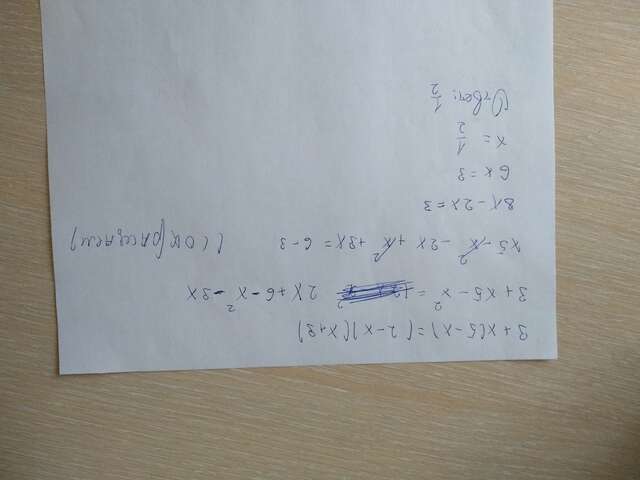 3 + x(5 - x) = (2 - x)(x + 3)
3 + x5 - x² = 2x + 6 - x² - 3x
x5 - x² - 2x + x² + 3x = 6 - 3 (сокращаем)
8x - 2x = 3
6x = 3
x = 1/2
Ответ: 1/2